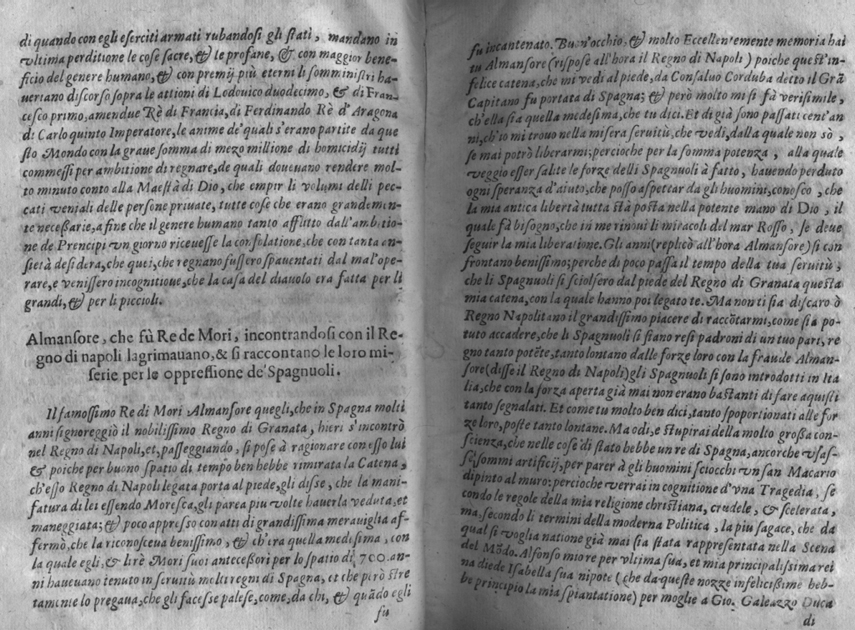 di quando con egli eserciti armati rubandosi gli stati, mandano in
vltima perditione le cose sacre, & le profane, & con maggior bene-
ficio del genere humano, & con premij più eterni li somministri ha-
ueriano discorso sopra le attioni di Lodouico duodecimo, & di Fran-
cesco primo, amendue Rè di Francia, di Ferdinando Rè d'Aragona
di Carlo quinto Imperatore, le anime de'quali s'erano partite da que
sto Mondo con la graue somma di mezo millione di homicidij tutti
commessi per ambitione di regnare, de quali doueuano rendere mol-
to minuto conto alla Maestà di Dio, che empir li volumi delli pec-
cati veniali delle persone priuate, tutte cose che erano grandemen-
te necessarie, a fine che il genere humano tanto afflitto dall'ambitio-
ne de Prencipi vn giorno riceuesse la consolatione, che con tanta an-
sietà desidera, che quei, che regnano fussero spauentati dal mal'ope-
rare, e venissero in cognitione, che la casa del diauolo era fatta per li
grandi, & per li piccioli.
Almansore, che fù Re de Mori, incontrandosi con il Re-
gno di napoli lagrimauano, & si raccontano le loro mi-
serie per le oppressione de'Spagnuoli.
Il famosissimo Re di Mori Almansore quegli, che in Spagna molti
anni signoreggiò il nobilissimo Regno di Granata, hieri s'incontrò
nel Regno di Napoli, et, passeggiando, si pose à ragionare con esso lui
& poiche per buono spatio di tempo ben hebbe rimirata la Catena,
ch'esso Regno di Napoli legata porta al piede, gli disse, che la mani-
fatura di lei essendo Moresca, gli parea piu volte hauerla veduta, et
maneggiata; & poco appresso con atti di grandissima merauiglia af-
fermò, che la riconosceua benissimo, & ch'era quella medesima, con
la quale egli, & li rè Mori suoi antecessori per lo spatio di 700. an-
ni haueuano tenuto in seruitù molti regni di Spagna, et che però stre
tamente lo pregaua, che gli facesse palese, come, da chi, & quãdo egli
fu
fu incantenato. Buon'occhio, & molto Eccellentemente memoria hai
tu Almansore (rispose all'hora il Regno di Napoli) poiche quest'in-
felice catena, che mi vedi al piede, da Consaluo Corduba detto il Grã
Capitano fu portata di Spagna; & però molto mi si fà verisimile,
ch'ella sia quella medesima, che tu dici. Et di già sono passati cent'an
ni, ch'io mi trouo nella misera seruitù, che vedi, dalla quale non sò,
se mai potrò liberarmi; percioche per la somma potenza, alla quale
veggio esser salite le forze delli Spagnuoli à fatto, hauendo perduto
ogni speranza d'aiuto, che posso aspettar da gli huomini, conosco, che
la mia antica libertà tutta stà posta nella potente mano di Dio, il
quale fà bisogno, che in me rinoui li miracoli del mar Rosso, se deue
seguir la mia liberatione. Gli anni (replicò all'hora Almansore) si con
frontano benissimo; perche di poco passa il tempo della tua seruitù,
che li Spagnuoli si sciolsero dal piede del Regno di Granata questa
mia catena, con la quale hanno poi legato te. Ma non ti sia discaro ò
Regno Napolitano il grandissimo piacere di raccõtarmi, come sia po-
tuto accadere, che li Spagnuoli si siano resi padroni di un tuo pari, re
gno tanto potẽte, tanto lontano dalle forze loro con la fraude Alman-
sore (disse il Regno di Napoli) gli Spagnuoli si sono introdotti in Ita
lia, che con la forza aperta già mai non erano bastanti di fare aquisti
tanto segnalati. Et come tu molto ben dici, tanto sproportionati alle for
ze loro, poste tanto lontane. Ma odi, e stupirai della molto grossa con-
scienza, che nelle cose di stato hebbe un re di Spagna, ancorche vsas-
se sommi artificij, per parer à gli huomini sciocchi vn san Macario
dipinto al muro: percioche verrai in cognitione d'vna Tragedia, se
condo le regole della mia religione christiana, crudele, & scelerata,
ma, secondo li termini della moderna Politica, la piu sagace, che da
qual si voglia natione già mai sia stata rappresentata nella Scena
del Mõdo. Alfonso mio re per vltima sua, et mia principalissima rei
na diede Isabella sua nipote (che da queste nozze infelicissime heb-
be principio la mia spiantatione) per moglie a Gio. Galeazzo Duca
di